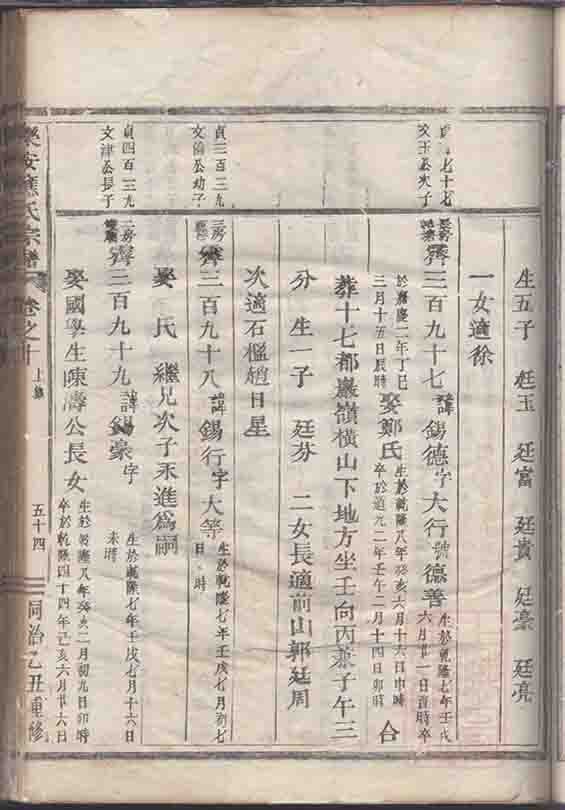 生五子 廷玉 廷富 廷貴 廷豪 廷亮
一女適徐
七十七
文玉公次子
齊三百九十七諱錫德字大行號德善
生於乾隆七年壬戌
六月廿一日酉時卒
於嘉慶二年丁巳
三月十五日辰時
娶鄭氏
生於乾隆八年癸亥六月十六日申時
卒於道光二年壬午二月十四日卯時
合
葬十七都巖嶺橫山下地方坐壬向丙兼子午三
分 生一子 廷芬 二女長適前山郭廷周
次適石楹趙日星
貞三百三九
公幼子
三房
齊三百九十八諱錫行字大等
生於乾隆七年壬戌七月初七
日 時
娶 氏 繼兄次子永進為嗣
貞四百三九
文津公長子
二房
齊三百九十九諱錫豪字
生於乾隆七年壬戌七月十六日
未時
娶國學生陳濤公長女
生於乾隆八年癸亥二月初九日卯時
卒於乾隆四十四年己亥六月廿六日
樂安 氏宗譜 卷之十 上集 五十四 同治乙丑重修